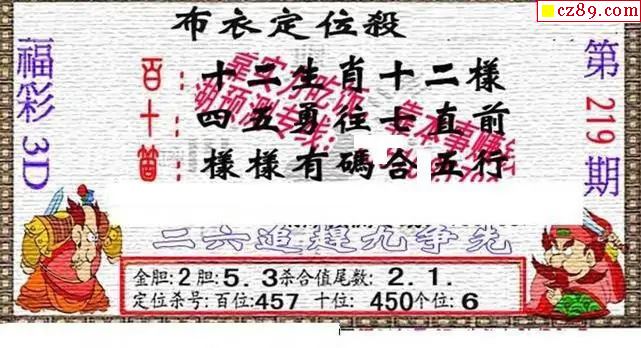 cz89.com
布衣定位殺
福彩3D
第219期
百：十二生肖十二樣
十：四五勇往七直前
箇：樣樣有碼合五行
二六追趕九争先
金胆:2胆:5.3杀合值尾数:2.1.
定位杀号:百位:457 十位:450个位:6